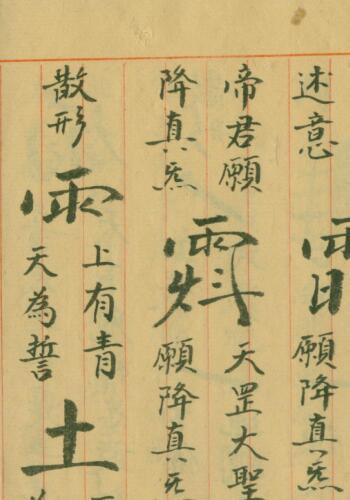 述意
願降真炁
帝君願
降真炁
天罡大聖
願降真炁
散形
雨
上有青
天為誓
土